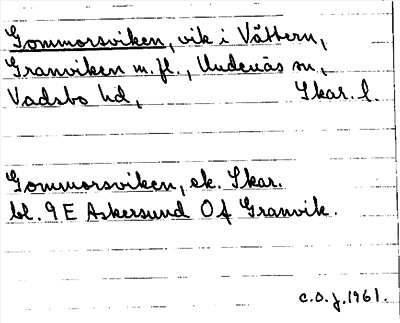 Gommorsviken, vik i Vättern,
Granviken m.fl., Undenäs sn,
Vadsbo hd, Skar. l.
Gommorsviken, ek. Skar.
bl. 9 E Askersund 0 f Granvik.
C.O.J. 1961.